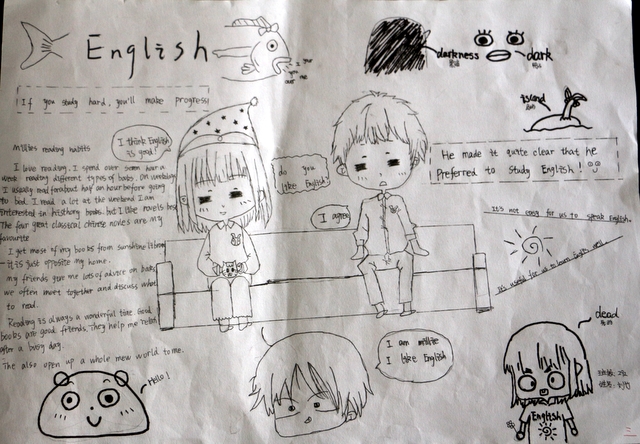 English
If you study hard, you'll make progress
Millie's reading habits
I love reading. I spend over an hour a
week reading different types of books. On weekdays
I usually read for about half an hour before going
to bed. I read a lot at the weekend. I am
interested in history books. but I like novels best.
The four great classical Chinese novels are my
favourite
I get most of my books from sunshine library
it is just opposite my home.
my friends give me lots of advice on books
we often meet together and discuss what
to read.
Reading is always a wonderful time. Good
books are good friends. They help me relax
after a busy day.
The also open up a whole new world to me.
I think English
is good!
do you
like English?
I agree
darkness
dark
island
He made it quite clear that he
Preferred to study English!
It's not easy for us to speak English.
It's useful for us to learn English well
I am millie
I like English
Hello!
dead
English